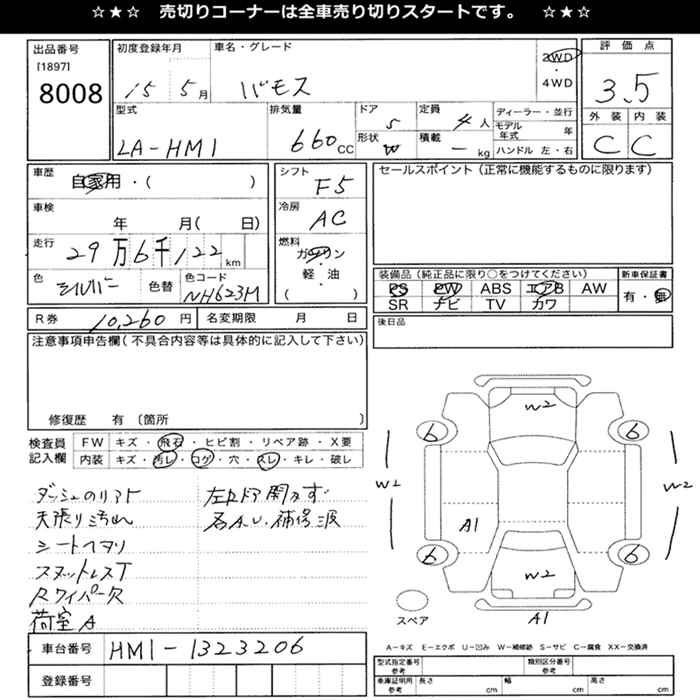 ☆★☆　売切りコーナーは全車売り切りスタートです。　☆★☆
出品番号
[1897]
8008
初度登録年月
15 5月
車名・グレード
バモス
2WD
・
4WD
評価点
3.5
外装 内装
C C
型式
LA-HM1
排気量
660 CC
ドア
5
形状
W
定員
4人
積載
- kg
ディーラー・並行
モデル年式 年
ハンドル 左・右
車歴
自家用・( )
車検
年 月( 日)
走行
29万6千122 km
色
シルバー
色替
色コード
NH623M
シフト
F5
冷房
AC
燃料
ガソリン
・
軽・油
・
( )
セールスポイント(正常に機能するものに限ります)
装備品(純正品に限り○をつけてください)
PS PW ABS エアB AW
SR ナビ TV カワ
新車保証書
有・無
R券 10,260円
名変期限 月 日
後日品
注意事項申告欄(不具合内容等は具体的に記入して下さい)
修復歴 有(箇所 )
検査員
記入欄
FW キズ・飛石・ヒビ割・リペア跡・X要
内装 キズ・汚レ・コゲ・穴・スレ・キレ・破レ
天張り汚れ
シートヘタリ
Rワイパー欠
荷室A
W2
6 6
W2 W2
A1
6 6
W2
スペア
A1
車台番号 HM1-1323206
登録番号
A-キズ E-エクボ U-凹み W-補修跡 S-サビ C-腐食 XX-交換済
型式指定番号
参考
類別区分番号
参考
車庫証明用
参考
長さ cm 幅 cm 高さ cm